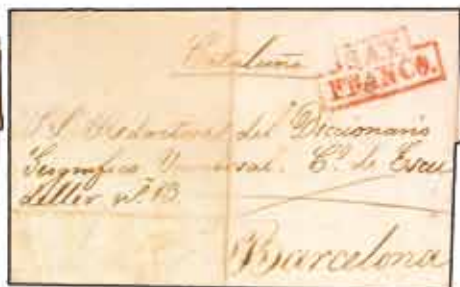 Cataluña
FRANCO.
Redactores del Diccionario
Geografico Universal. C.e de Escu
dillers n.o 13.
Barcelona